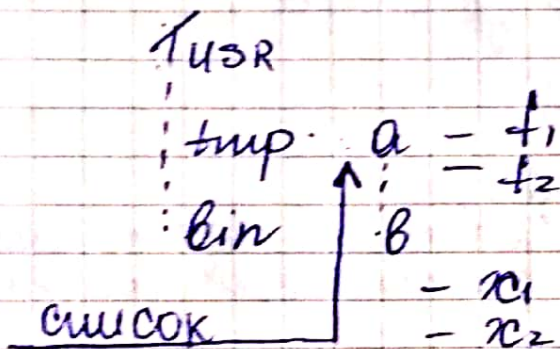 usr
tmp a - f1
- f2
bin b
- x1
список - x2